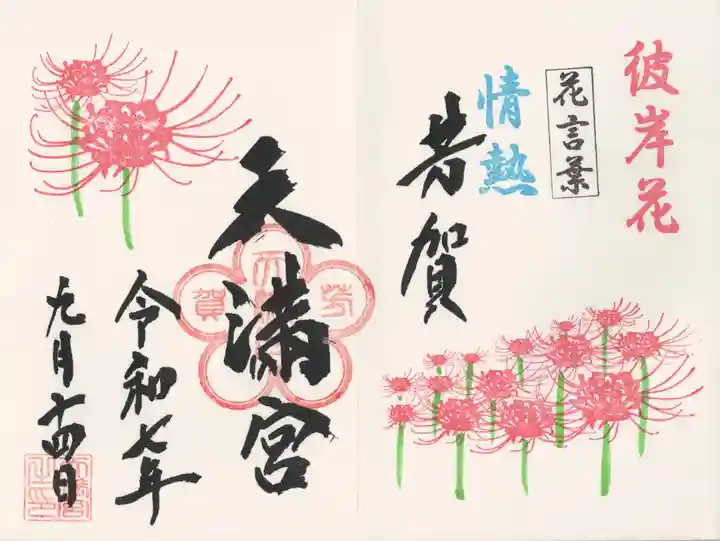 彼岸花
花言葉
情熱
芳賀
天満宮
令和七年
九月十四日
芳
賀